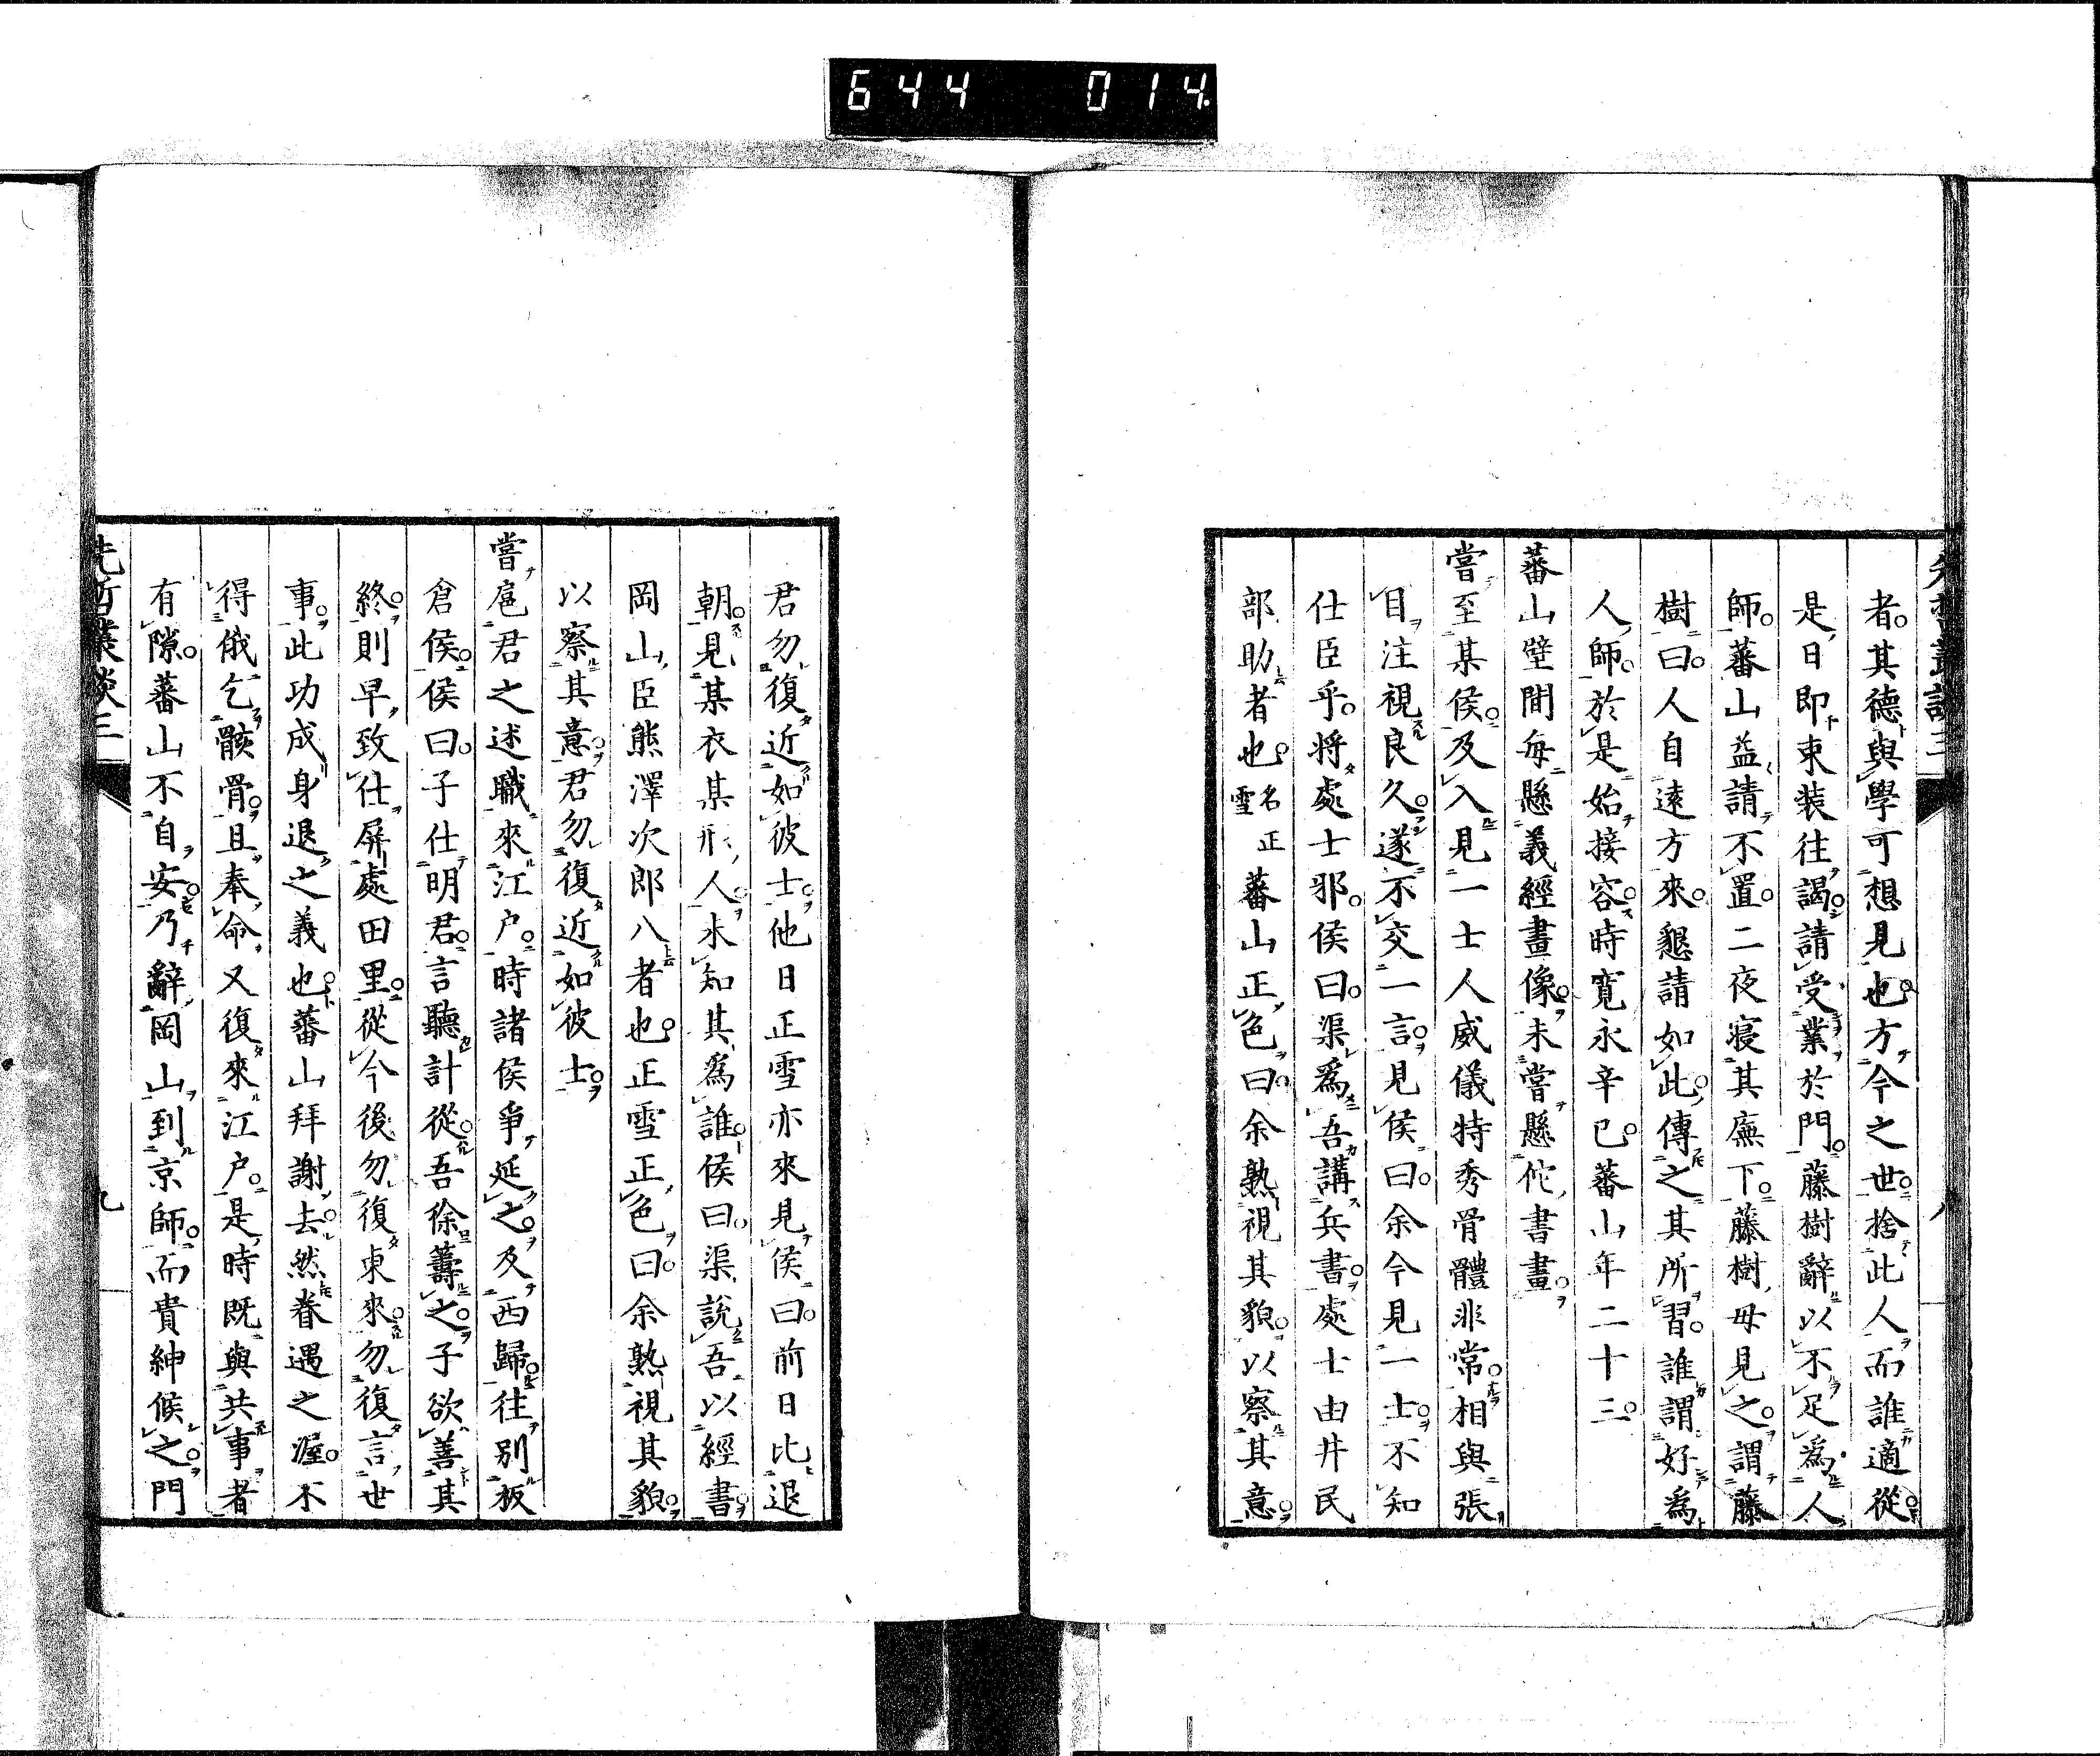 644 014
先哲叢談三
八
者其德與學可想見也方今之世捨此人而誰適從
是日即束裝往謁請受業於門藤樹辭以不足為人
師蕃山益請不置二夜寢其廡下藤樹母見之謂藤
樹曰人自遠方來懇請如此傳之其所習誰謂好為
人師於是始接容時寬永辛巳蕃山年二十三
蕃山壁間每懸義經畫像未嘗懸佗書畫
嘗至某侯及入見一士人威儀特秀骨體非常相與張
目注視良久遂不交一言見侯曰余今見一士不知
仕臣乎將處士邪侯曰渠為吾講兵書處士由井民
部助者也名正雪蕃山正色曰余熟視其貌以察其意
君勿復近如彼士他日正雪亦來見侯曰前日比退
朝見某衣某形人未知其為誰侯曰渠說吾以經書
岡山臣熊澤次郎八者也正雪正色曰余熟視其貌
以察其意君勿復近如彼士
嘗扈君之述職來江戶時諸侯爭延之及西歸往別板
倉侯侯曰子仕明君言聽計從吾徐籌之子欲善其
終則早致仕屏處田里從今後勿復東來勿復言世
事此功成身退之義也蕃山拜謝去然眷遇之渥不
得俄乞骸骨且奉命又復來江戶是時既與共事者
有隙蕃山不自安乃辭岡山到京師而貴紳候之門
先哲叢談三
九